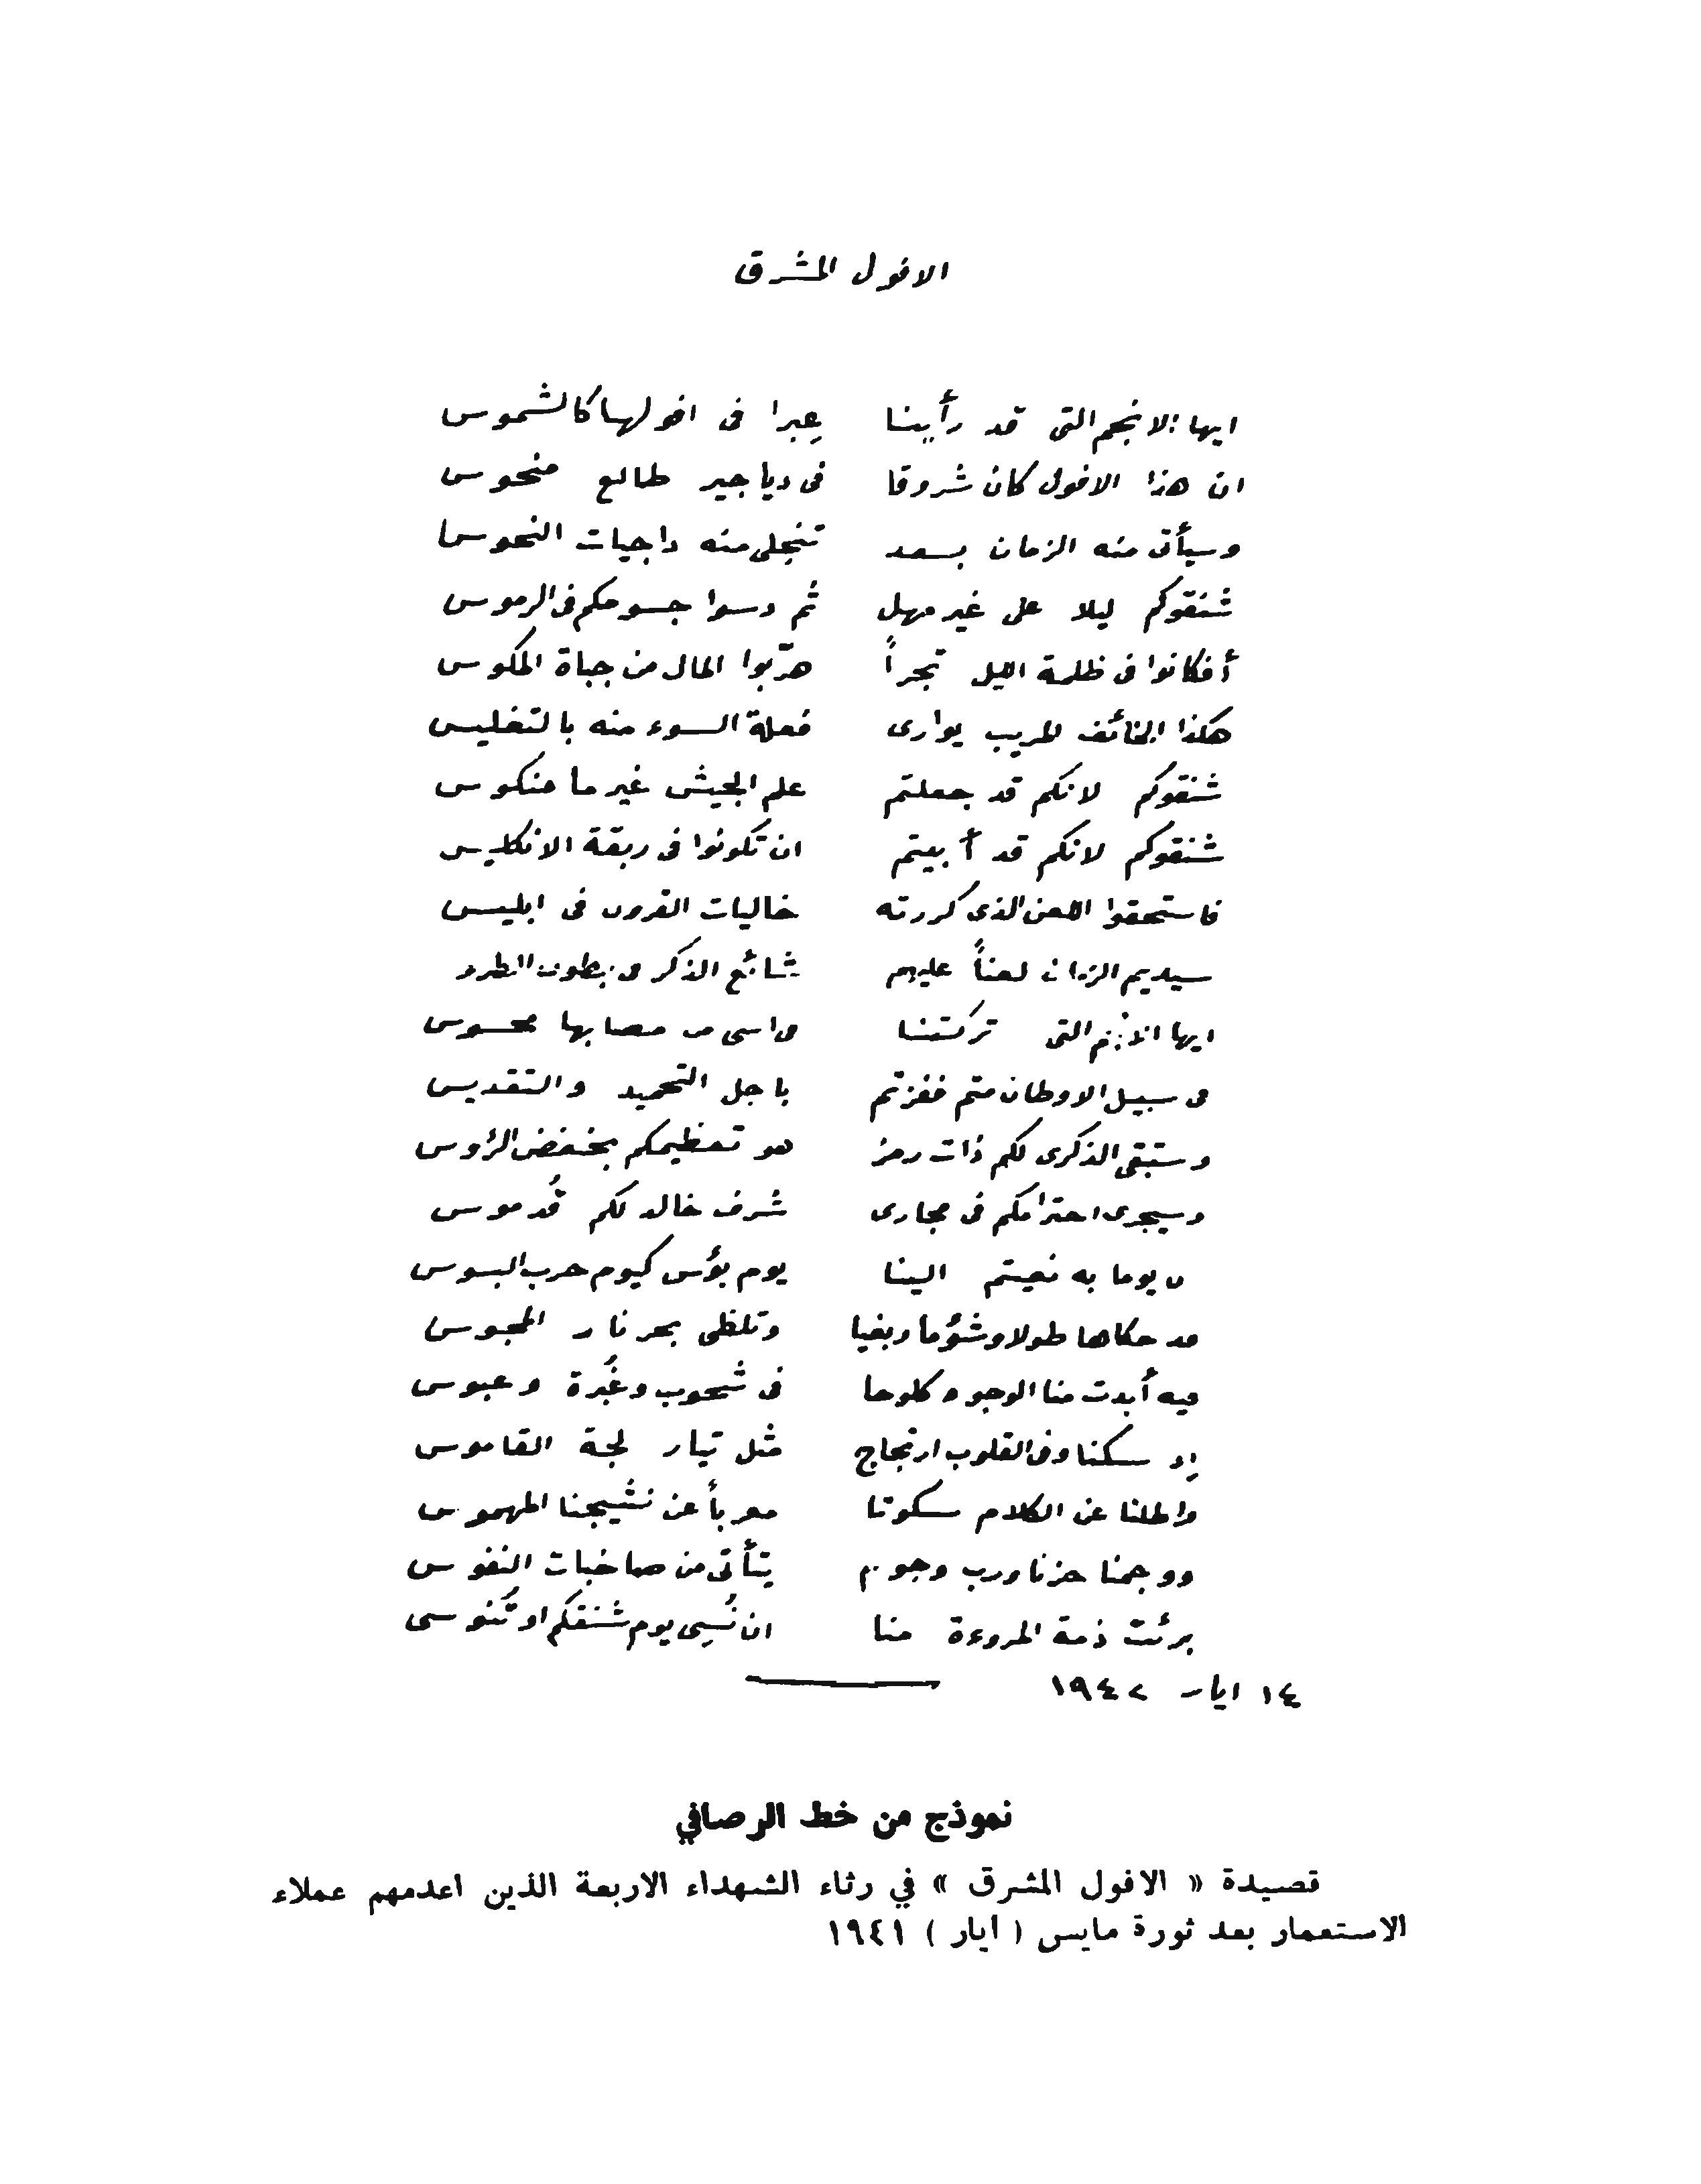 الافول المشرق
ايها الانجم التى قد رأينا عِبرا فى افولها كالشموس
ان هذا الافول كان شروقا فى دياجير طالع منحوس
وسيأتى منه الزمان بسعد تنجلى منه داجيات النحوس
شنقوكم ليلا على غير مهل ثم دسوا جسومكم فى الرموس
أفكانوا فى ظلمة الليل تجراً هرّبوا المال من جباة المكوس
هكذا الخائف المريب يوارى فعلة السوء منه بالتغليس
شنقوكم لانكم قد جعلتم علم الجيش غير ما منكوس
شنقوكم لانكم قد أبيتم ان تكونوا فى ربقة الانكليس
فاستحقوا اللعن الذى كررته خاليات القرون فى ابليس
سيديم الزمان لعناً عليهم شائع الذكر فى بطون الطروس
ايها الانجم التى تركتنا فى اسى من مصابها محسوس
فى سبيل الاوطان متم ففزتم باجل التحميد والتقديس
وستبقى الذكرى لكم ذات رمز هو تعظيمكم بخفض الرؤوس
وسيجرى احترامكم فى مجارى شرف خالد لكم قُدموس
ان يوما به نعيتم الينا يوم بؤس كيوم حرب البسوس
قد حكاها طولا وشؤما وبغيا وتلظى بحر نار المجوس
فيه أبدت منا الوجوه كلوحا فى شحوب وغُبرة وعبوس
إذ سكنا وفى القلوب ارتجاج مثل تيار لجة القاموس
واطلنا عن الكلام سكوتا معرباً عن نشيجنا المهموس
ووجمنا حزنا ورب وجوم يتأتى من صاخبات النفوس
برئت ذمة المروءة منا ان نُسِى يوم شنقكم او تُنوسى
١٤ ايار ١٩٤٢
نموذج من خط الرصافي
قصيدة « الافول المشرق » في رثاء الشهداء الاربعة الذين اعدمهم عملاء
الاستعمار بعد ثورة مايس ( ايار ) ١٩٤١